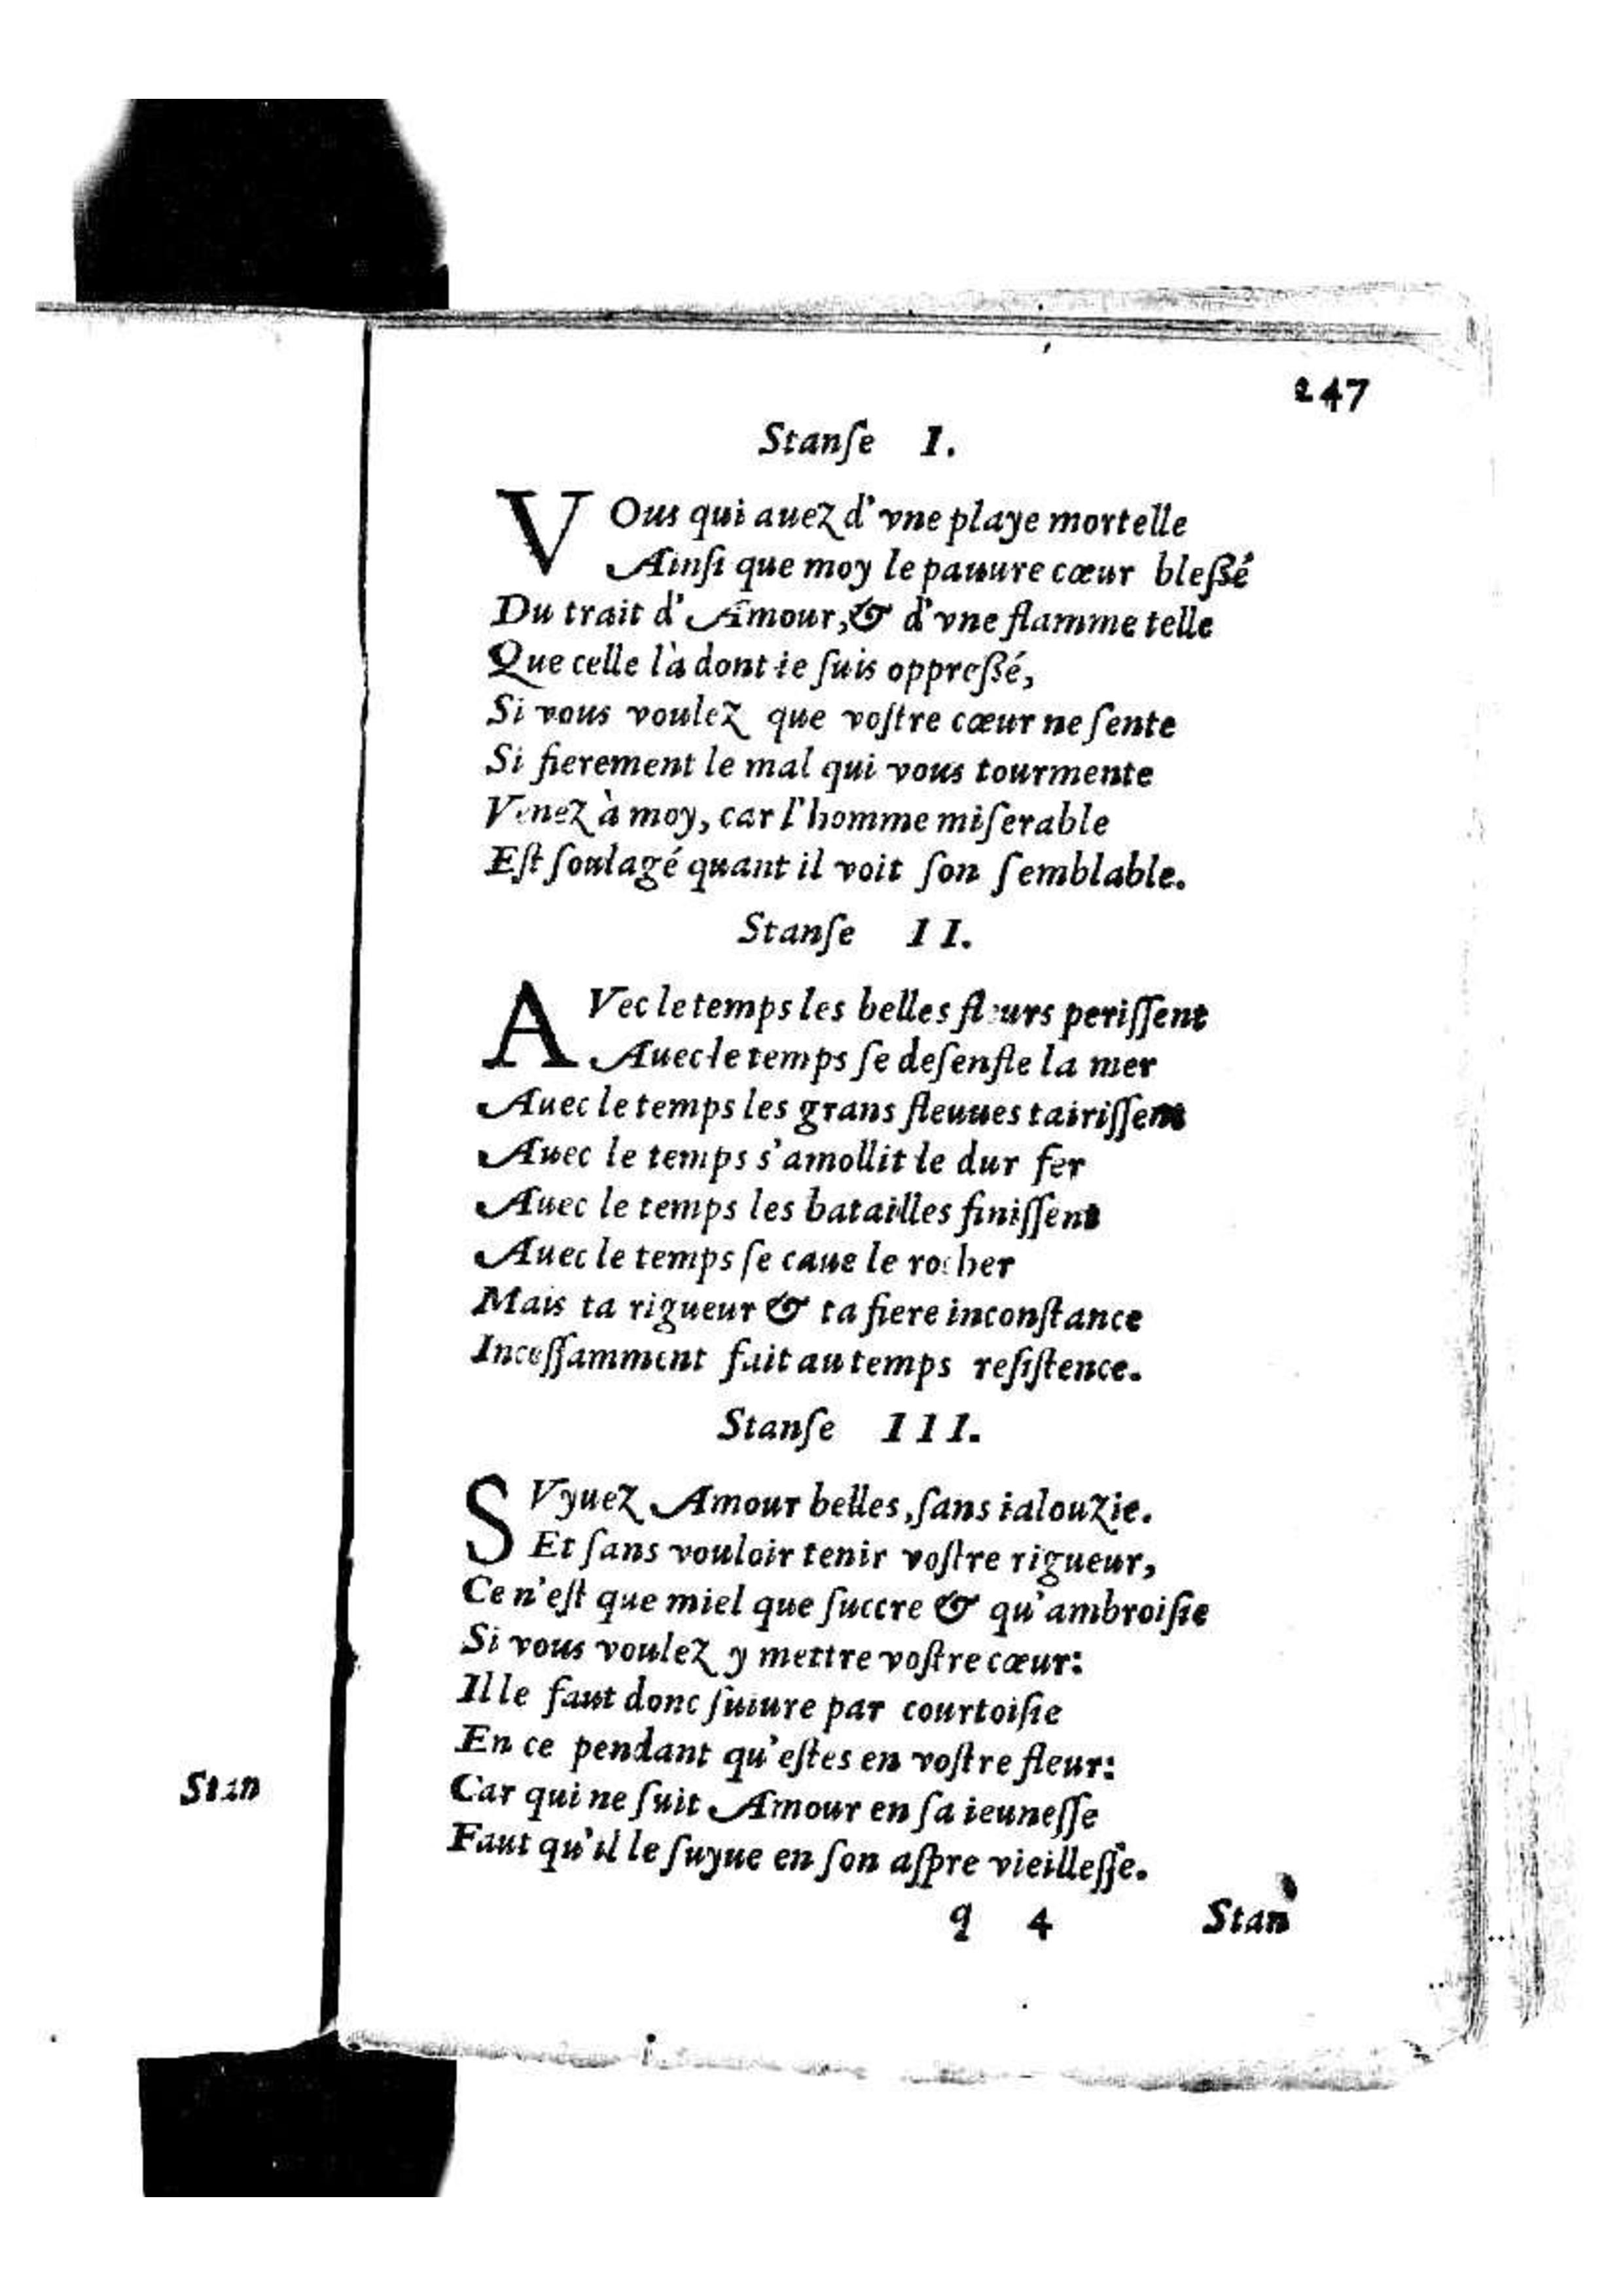 247
Stanſe I.
VOus qui auez d'vne playe mortelle
Ainſi que moy le pauure cœur bleßé
Du trait d'Amour, & d'vne flamme telle
Que celle là dont ie ſuis oppreßé,
Si vous voulez que voſtre cœur ne ſente
Si fierement le mal qui vous tourmente
Venez à moy, car l'homme miſerable
Eſt ſoulagé quant il voit ſon ſemblable.
Stanſe II.
AVec le temps les belles fleurs periſſent
Auec le temps ſe deſenfle la mer
Auec le temps les grans fleuues tairiſſent
Auec le temps s'amollit le dur fer
Auec le temps les batailles finiſſent
Auec le temps ſe caue le rocher
Mais ta rigueur & ta fiere inconſtance
Inceſſamment fait au temps reſiſtence.
Stanſe III.
SVyuez Amour belles, ſans ialouzie.
Et ſans vouloir tenir voſtre rigueur,
Ce n'eſt que miel que ſuccre & qu'ambroiſie
Si vous voulez y mettre voſtre cœur:
Il le faut donc ſuiure par courtoiſie
En ce pendant qu'eſtes en voſtre fleur:
Car qui ne ſuit Amour en ſa ieuneſſe
Faut qu'il le ſuyue en ſon aſpre vieilleſſe.
q 4 Stan
Stan